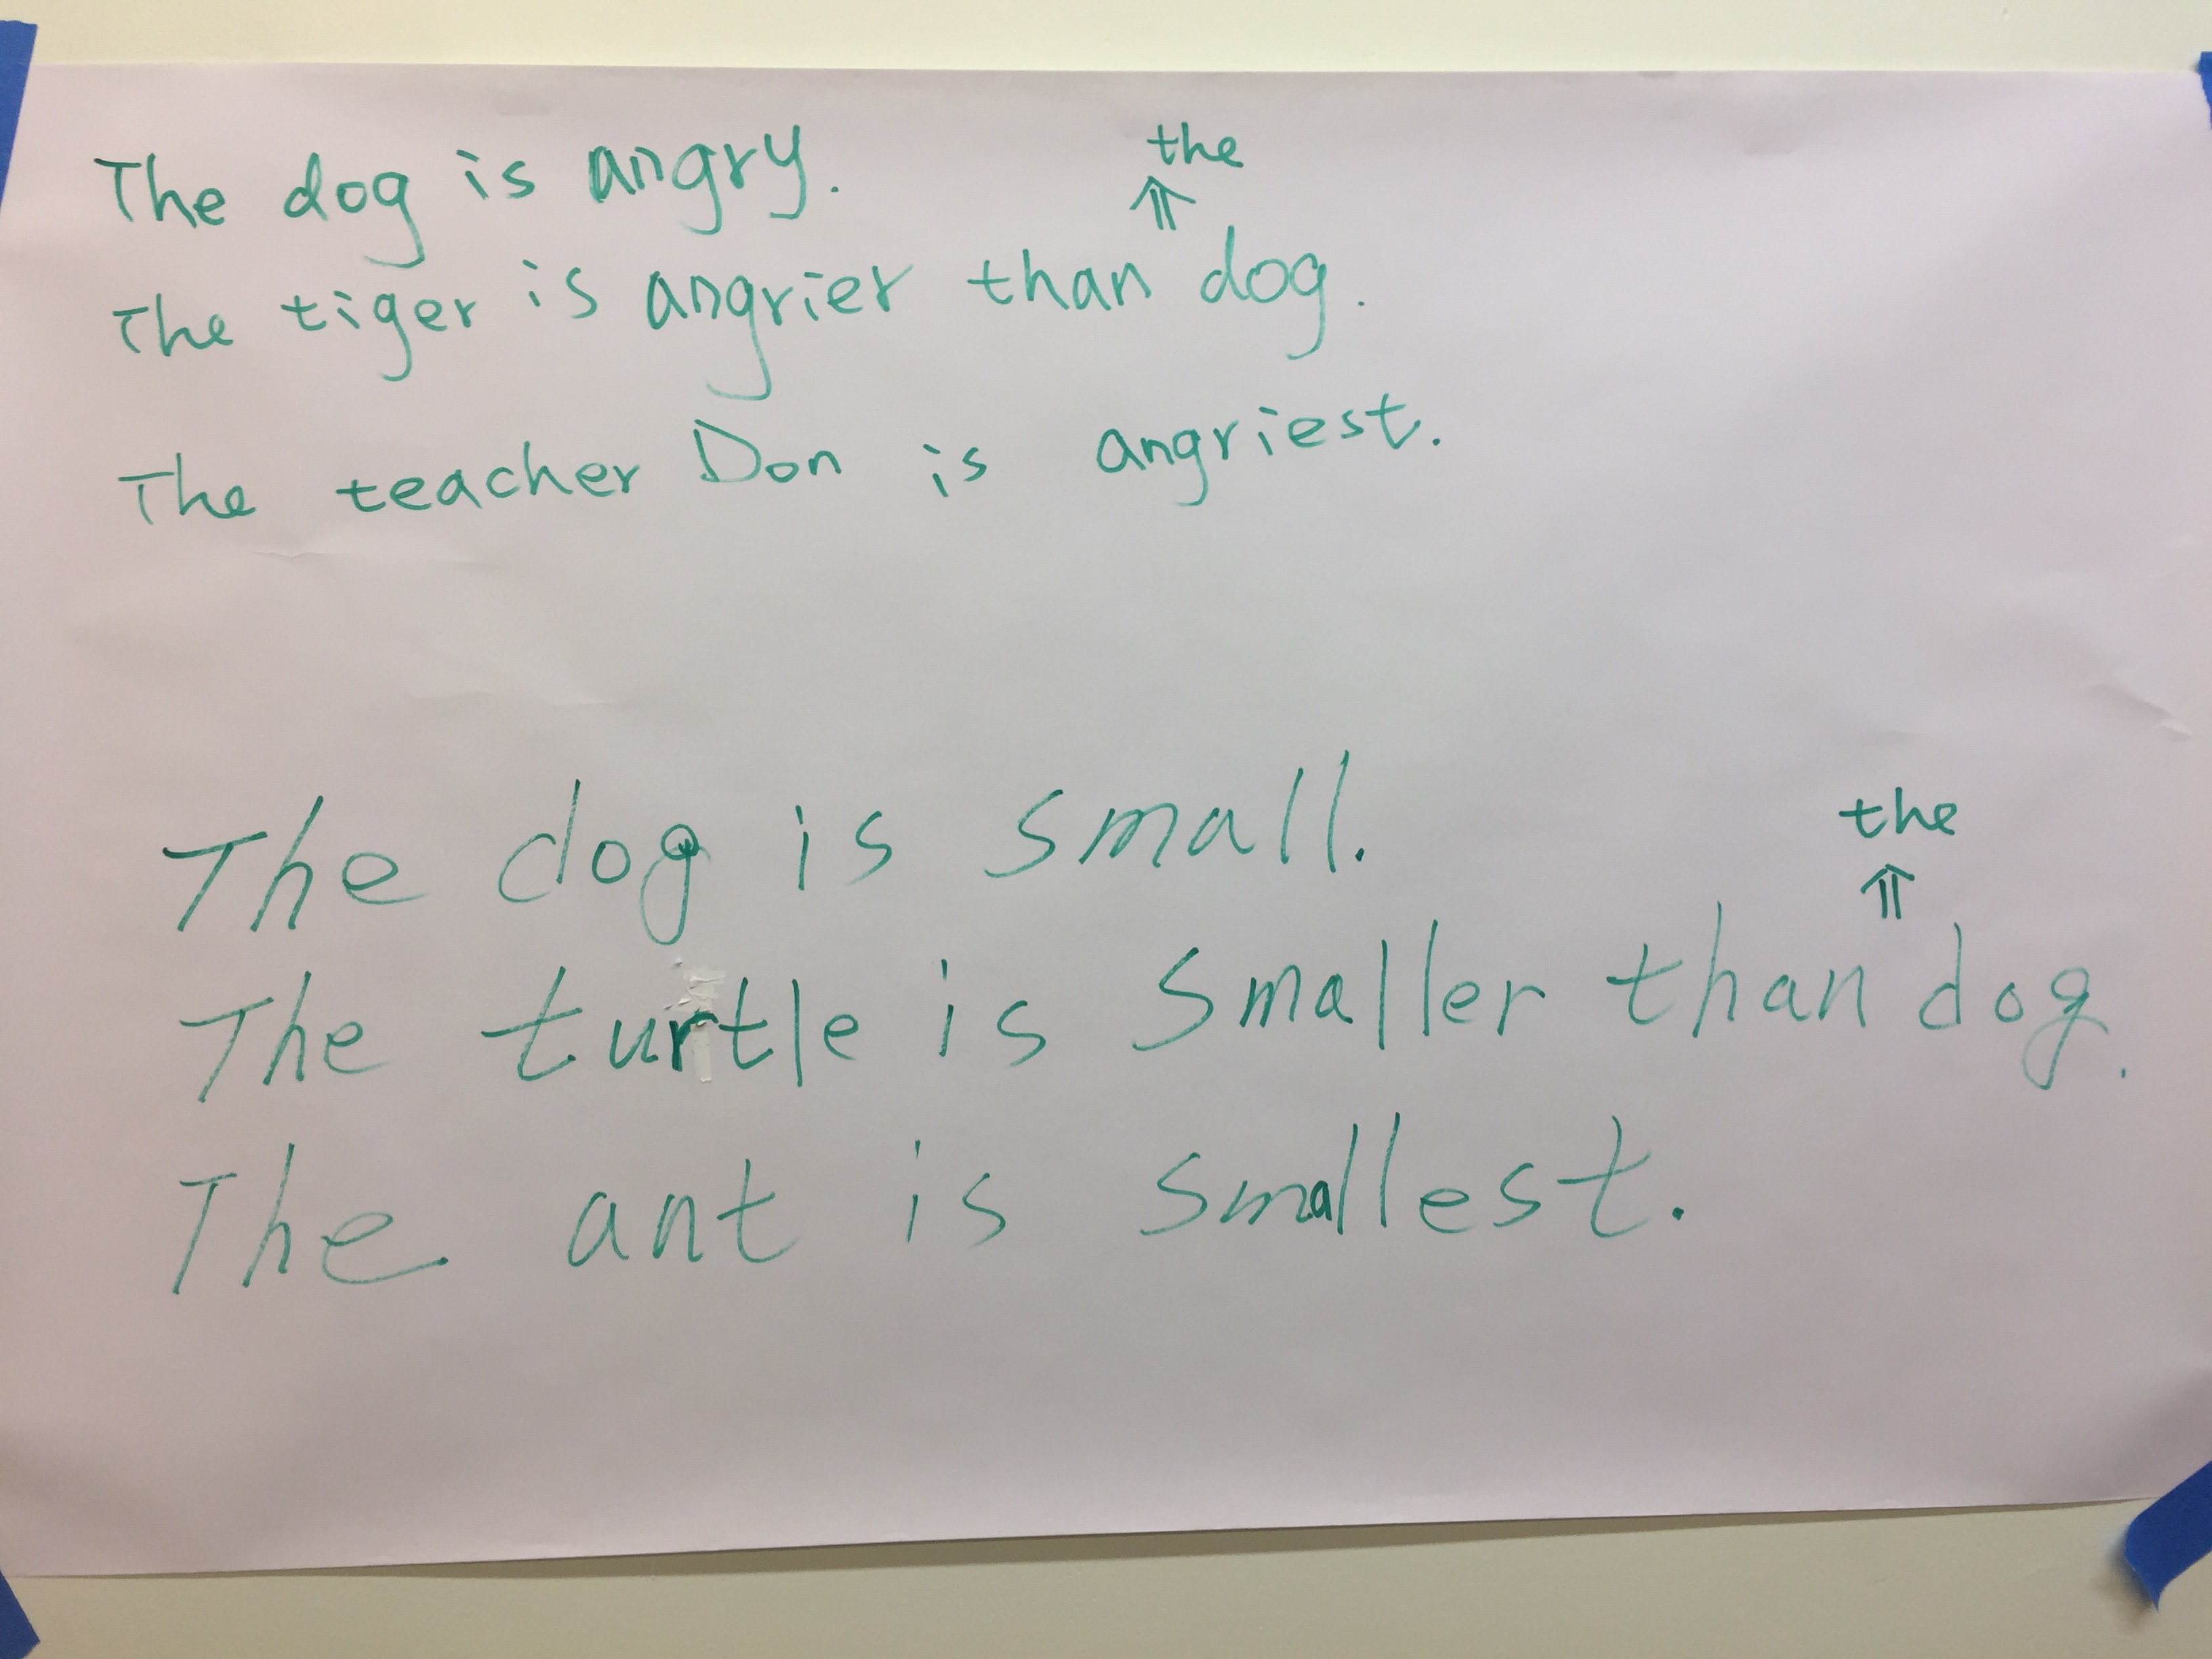 The dog is angry.
the
⇑
The tiger is angrier than dog.
The teacher Don is angriest.
The dog is small.
the
⇑
The turtle is smaller than dog.
The ant is smallest.